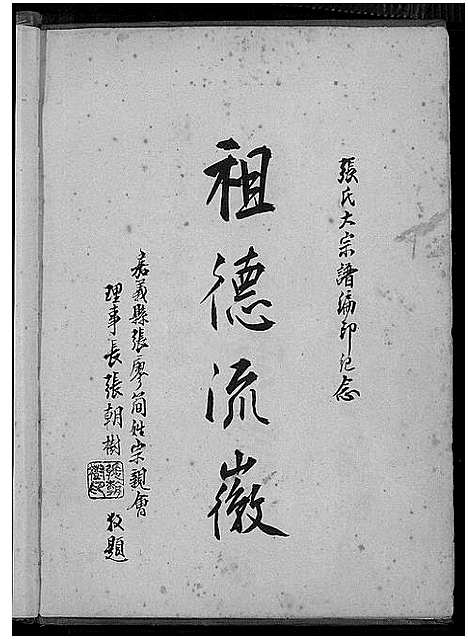 張氏大宗譜編印紀念
祖德流徽
嘉義縣張廖簡姓宗親會
理事長張朝樹
敬題